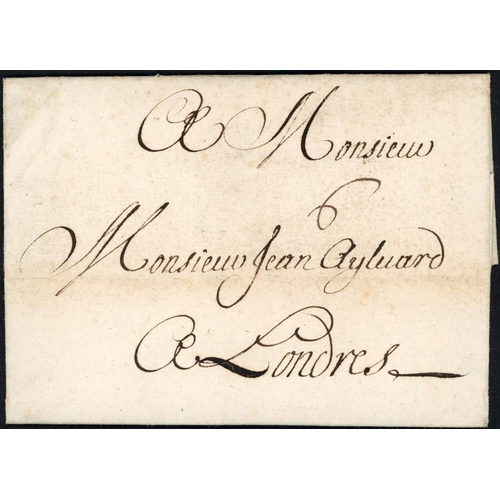 A Monsieur
6
Monsieur Jean Aylward
A Londres